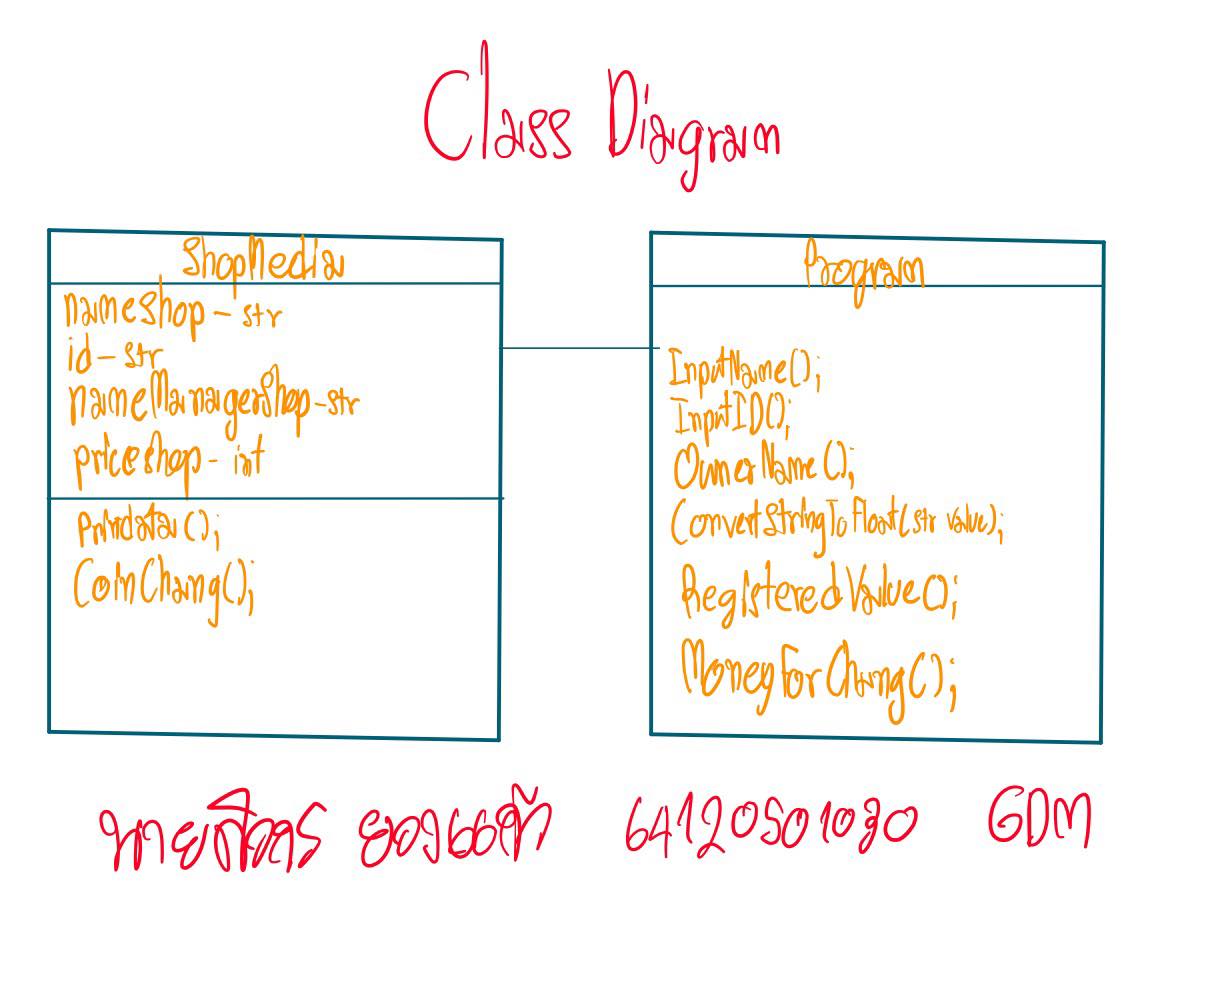 Class Diagram
ShopMedia
nameshop - str
id - str
nameManagerShop - str
priceshop - int
Printdata();
CoinChang();
Program
InputName();
InputID();
OwnerName();
ConvertStringToFloat(str value);
RegisteredValue();
MoneyForChang();
64120501030 GDM